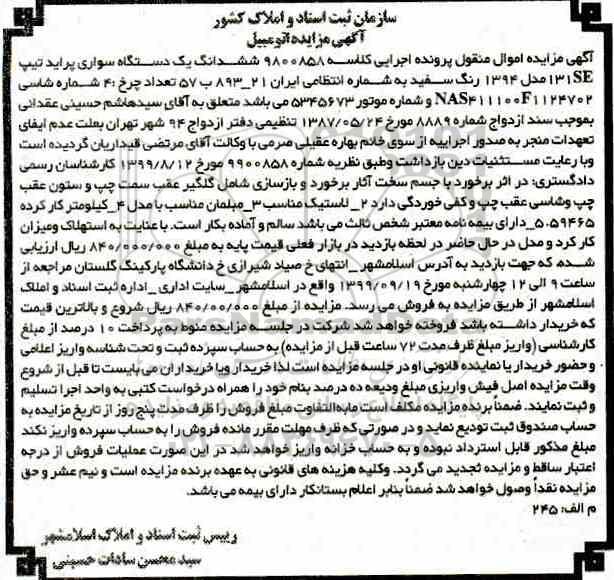 سازمان ثبت اسناد و املاک کشور
آگهی مزایده اتومبیل
آگهی مزایده اموال منقول پرونده اجرایی کلاسه ۹۸۰۰۸۵۸ ششدانگ یک دستگاه سواری پراید تیپ
۱۳۱SE مدل ۱۳۹۴ رنگ سفید به شماره انتظامی ایران ۲۱_۸۹۳ ب ۵۷ تعداد چرخ ۴: شماره شاسی
NAS۴۱۱۱۰۰F۱۱۲۴۷۰۲ و شماره موتور ۵۳۴۵۶۷۳ می باشد متعلق به آقای سیدهاشم حسینی عقدائی
بموجب سند ازدواج شماره ۸۸۸۹ مورخ ۱۳۸۷/۰۵/۲۴ تنظیمی دفتر ازدواج ۹۴ شهر تهران بعلت عدم ایفای
تعهدات منجر به صدور اجراییه از سوی خانم بهاره عقیلی صرمی با وکالت آقای مرتضی قیداریان گردیده است
وبا رعایت مستثنیات دین بازداشت وطبق نظریه شماره ۹۹۰۰۸۵۸ مورخ ۱۳۹۹/۸/۱۲ کارشناسان رسمی
دادگستری: در اثر برخورد با جسم سخت آثار برخورد و بازسازی شامل گلگیر عقب سمت چپ و ستون عقب
چپ وشاسی عقب چپ و کفی خوردگی دارد ۲_ لاستیک مناسب ۳_مبلمان مناسب با مدل ۴_کیلومتر کار کرده
۵۰۵۹۴۶۵_دارای بیمه نامه معتبر شخص ثالث می باشد سالم و آماده بکار است. با عنایت به استهلاک ومیزان
کار کرد و مدل در حال حاضر در لحظه بازدید در بازار فعلی قیمت پایه به مبلغ ۸۴۰/۰۰۰/۰۰۰ ریال ارزیابی
شده، که جهت بازدید به آدرس اسلامشهر_انتهای خ صیاد شیرازی خ دانشگاه پارکینگ گلستان مراجعه از
ساعت ۹ الی ۱۲ چهارشنبه مورخ ۱۳۹۹/۰۹/۱۹ واقع در اسلامشهر_سایت اداری_اداره ثبت اسناد و املاک
اسلامشهر از طریق مزایده به فروش می رسد. مزایده از مبلغ ۸۴۰/۰۰/۰۰۰ ریال شروع و بالاترین قیمت
که خریدار داشته باشد فروخته خواهد شد شرکت در جلسه مزایده منوط به پرداخت ۱۰ درصد از مبلغ
کارشناسی (واریز مبلغ ظرف مدت ۷۲ ساعت قبل از مزایده) به حساب سپرده ثبت و تحت شناسه واریز اعلامی
و حضور خریدار یا نماینده قانونی او در جلسه مزایده است لذا خریدار ویا خریداران می بایست تا قبل از شروع
وقت مزایده اصل فیش واریزی مبلغ ودیعه ده درصد بنام خود را همراه درخواست کتبی به واحد اجرا تسلیم
و ثبت نمایند. ضمناً برنده مزایده مکلف است مابه التفاوت مبلغ فروش را ظرف مدت پنج روز از تاریخ مزایده به
حساب صندوق ثبت تودیع نماید و در صورتی که ظرف مهلت مقرر مانده فروش را به حساب سپرده واریز نکند
مبلغ مذکور قابل استرداد نبوده و به حساب خزانه واریز خواهد شد در این صورت عملیات فروش از درجه
اعتبار ساقط و مزایده تجدید می گردد. وکلیه هزینه های قانونی به عهده برنده مزایده است و نیم عشر و حق
مزایده نقداً وصول خواهد شد ضمناً بنابر اعلام بستانکار دارای بیمه می باشد.
م الف: ۲۴۵
رییس ثبت اسناد و املاک اسلامشهر
سید محسن سادات حسینی